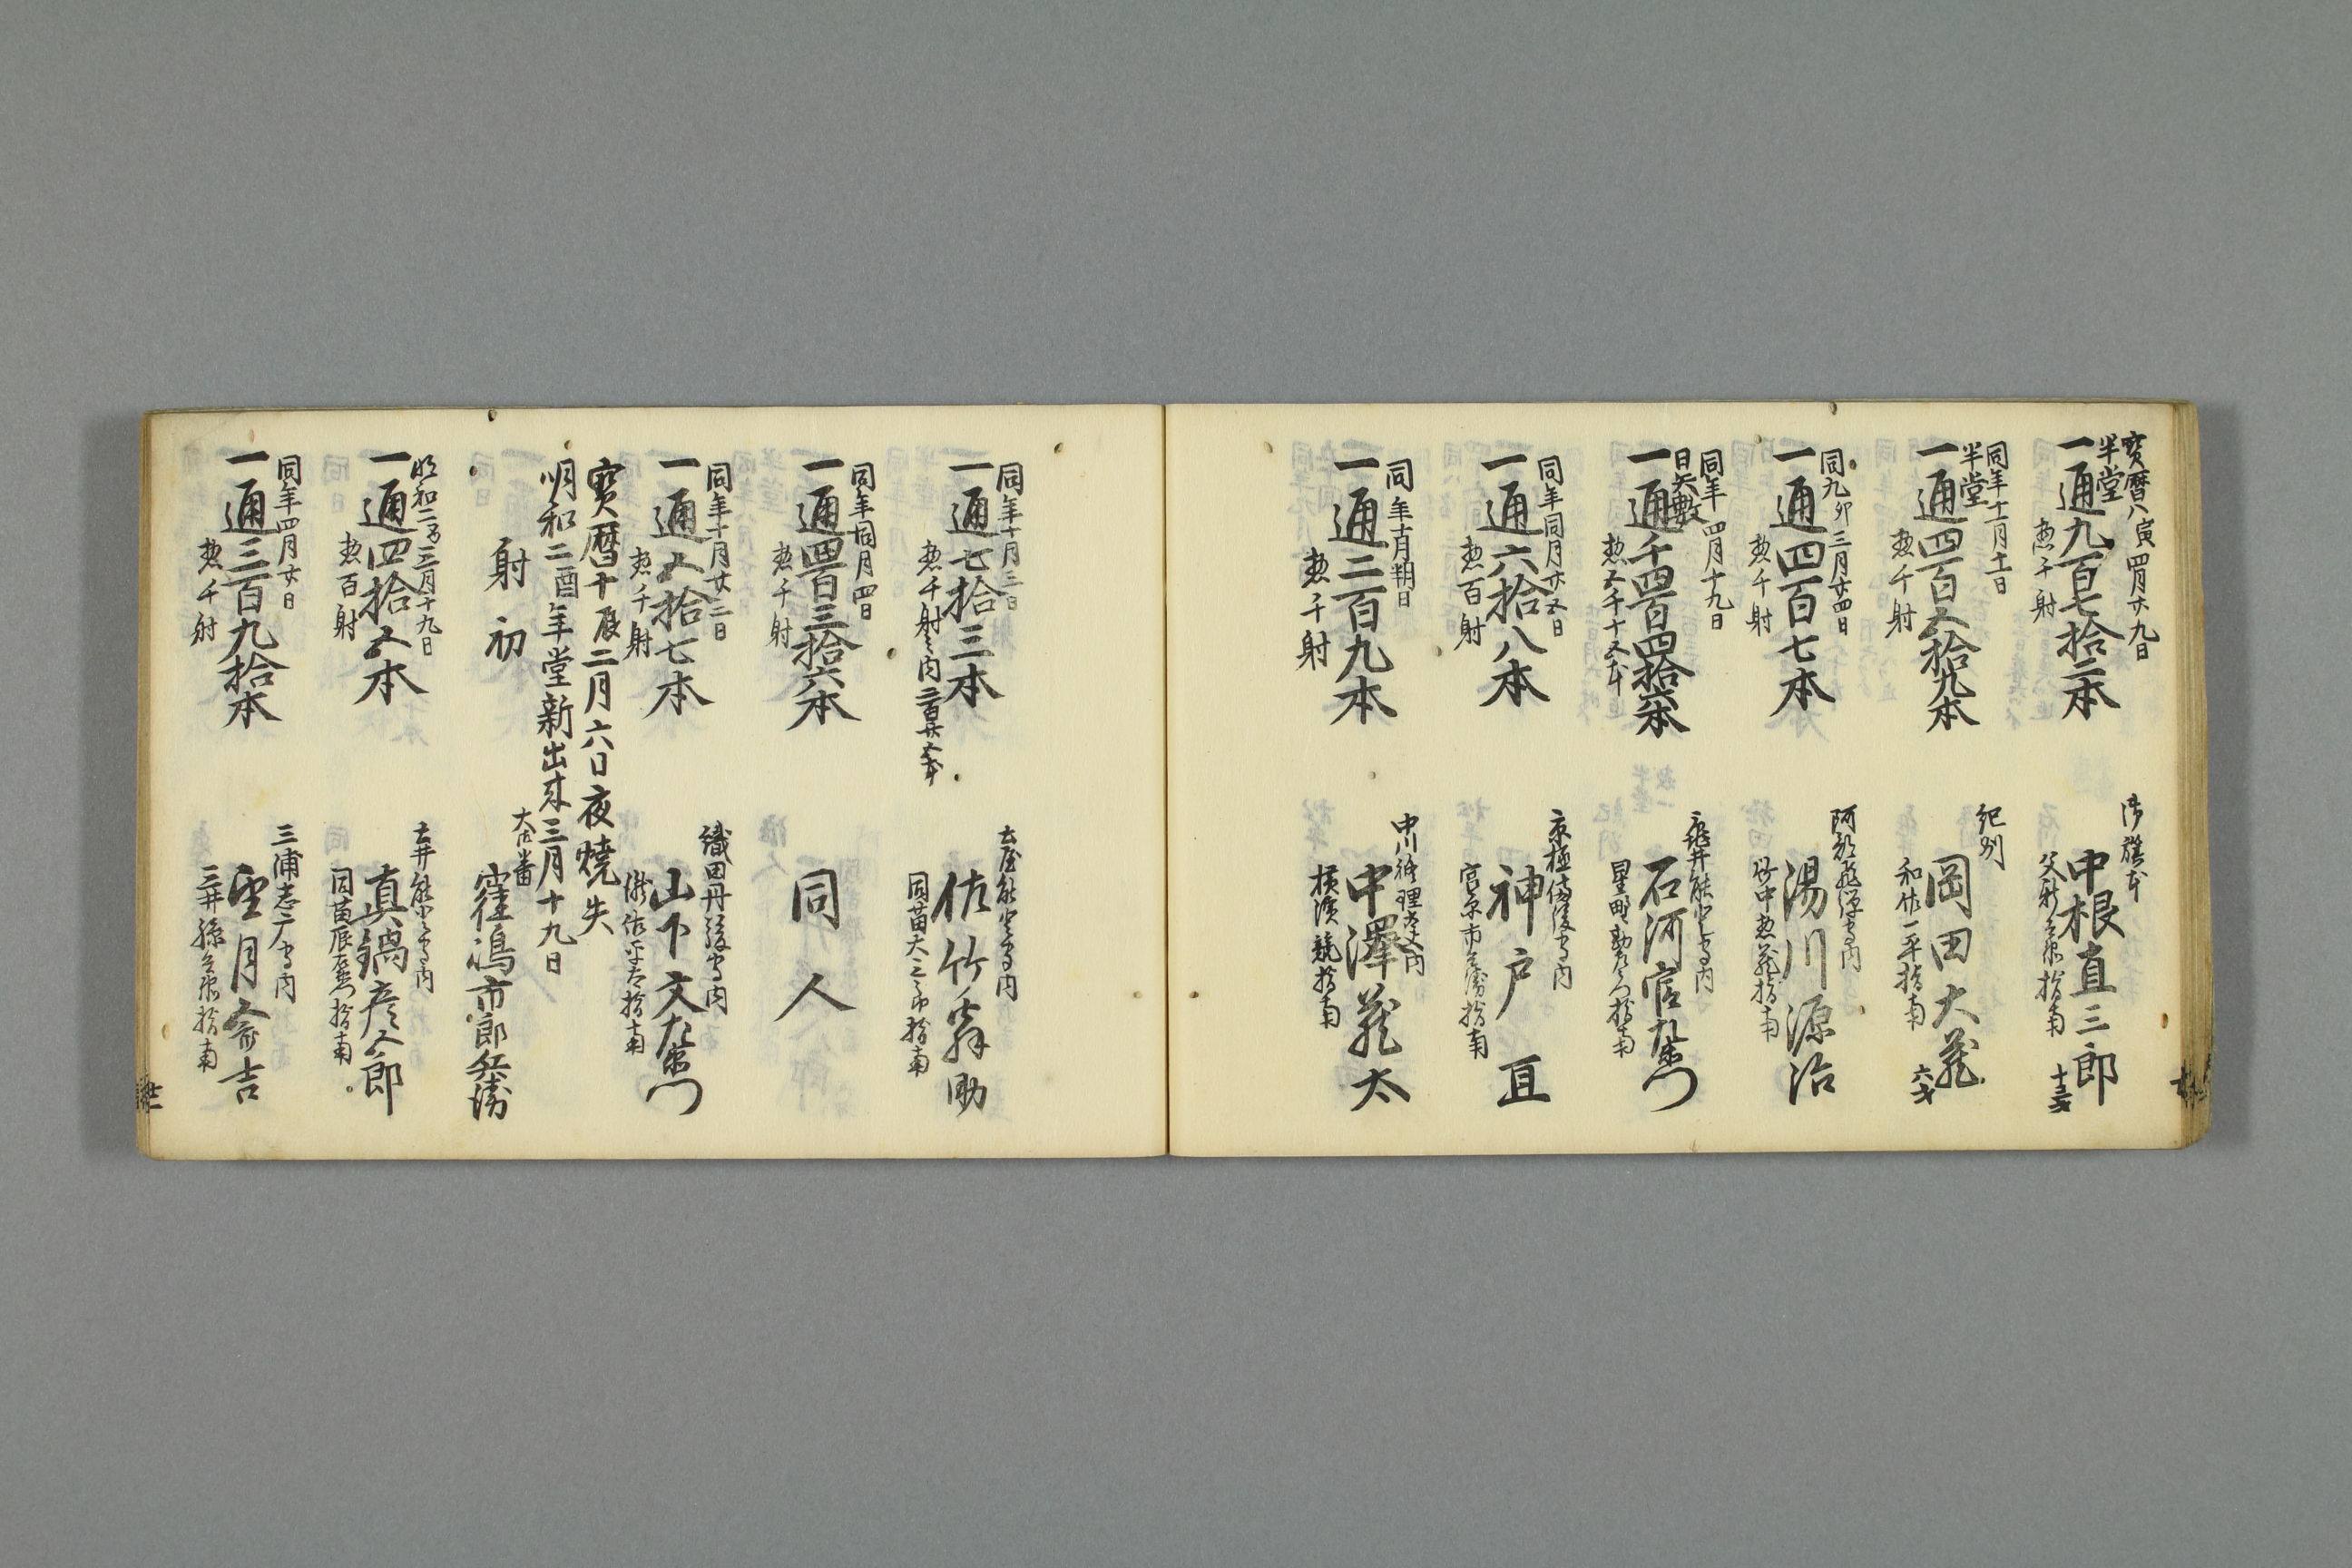 寳暦八寅四月廿九日
半堂
一通九百七拾二本
惣千射
御旗本
中根直三郎
父新左衛門指南
十三才
同年十一月十一日
半堂
一通四百五拾九本
惣千射
紀州
岡田大蔵
和佐一平指南
六才
同九卯三月廿四日
一通四百七本
惣千射
阿部飛澤守内
湯川源治
竹中惣蔵指南
同年四月十九日
日矢數
一通千四百四拾六本
惣五千十五本
亀井能登守内
石河官左衛門
星野勘左衛門指南
同年同月廿五日
一通六拾八本
惣百射
京極備後守内
神戸亘
同年十月朔日
一通二百九本
惣千射
中川修理太夫内
中澤蔵太
横濱競指南
同年十月三日
一通七拾三本
惣千射之内
土屋能登守内
佐竹舜助
同年同月四日
一通四百三拾六本
惣千射
同人
同年十月廿二日
一通五拾七本
惣千射
織田丹後守内
山下文左衛門
寳暦十辰二月六日夜焼失
明和二酉年堂新出来三月十九日
射初
大御番
窪嶋市郎兵衛
明和二酉三月十九日
一通四拾五本
惣百射
土井能登守内
真鍋彦五郎
同苗辰右衛門指南
同年四月廿日
一通三百九拾本
惣千射
三浦志广守内
望月斎吉
三井孫兵衛指南